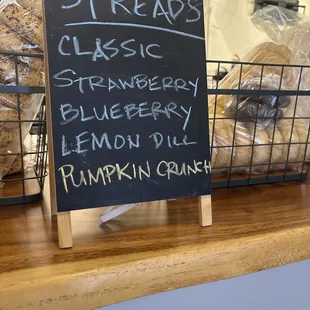 SPREADS
CLASSIC
STRAWBERRY
BLUEBERRY
LEMON DILL
PUMPKIN CRUNCH